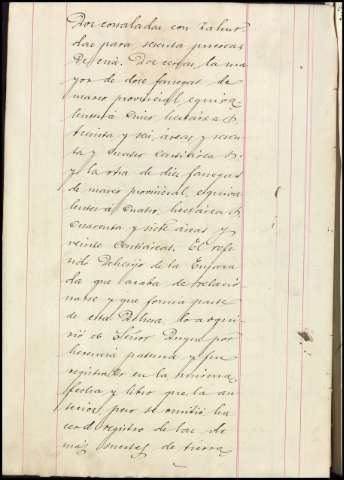 Dos corraladas con zahur
das para sesenta puercas
de cria. Dos cercas, la ma
yor de doce fanegas de
marco provincial, equiva
lentes á cinco hectáreas
treinta y seis áreas y sesen
ta y cuatro centiáreas
y la otra de diez fanegas
de marco provincial, equiva
lentes á cuatro hectáreas
cuarenta y siete áreas y
veinte centiáreas. El refe
rido Dehesijo de la
que acaba de relacio
narse y que forma parte
de esta Dehesa, lo adqui
rió el Señor Duque por
herencia paterna y fue
registrado en la misma
fecha y libro que la an
terior, pero se omitió ha
cer el registro de las de
mas suertes de tierra